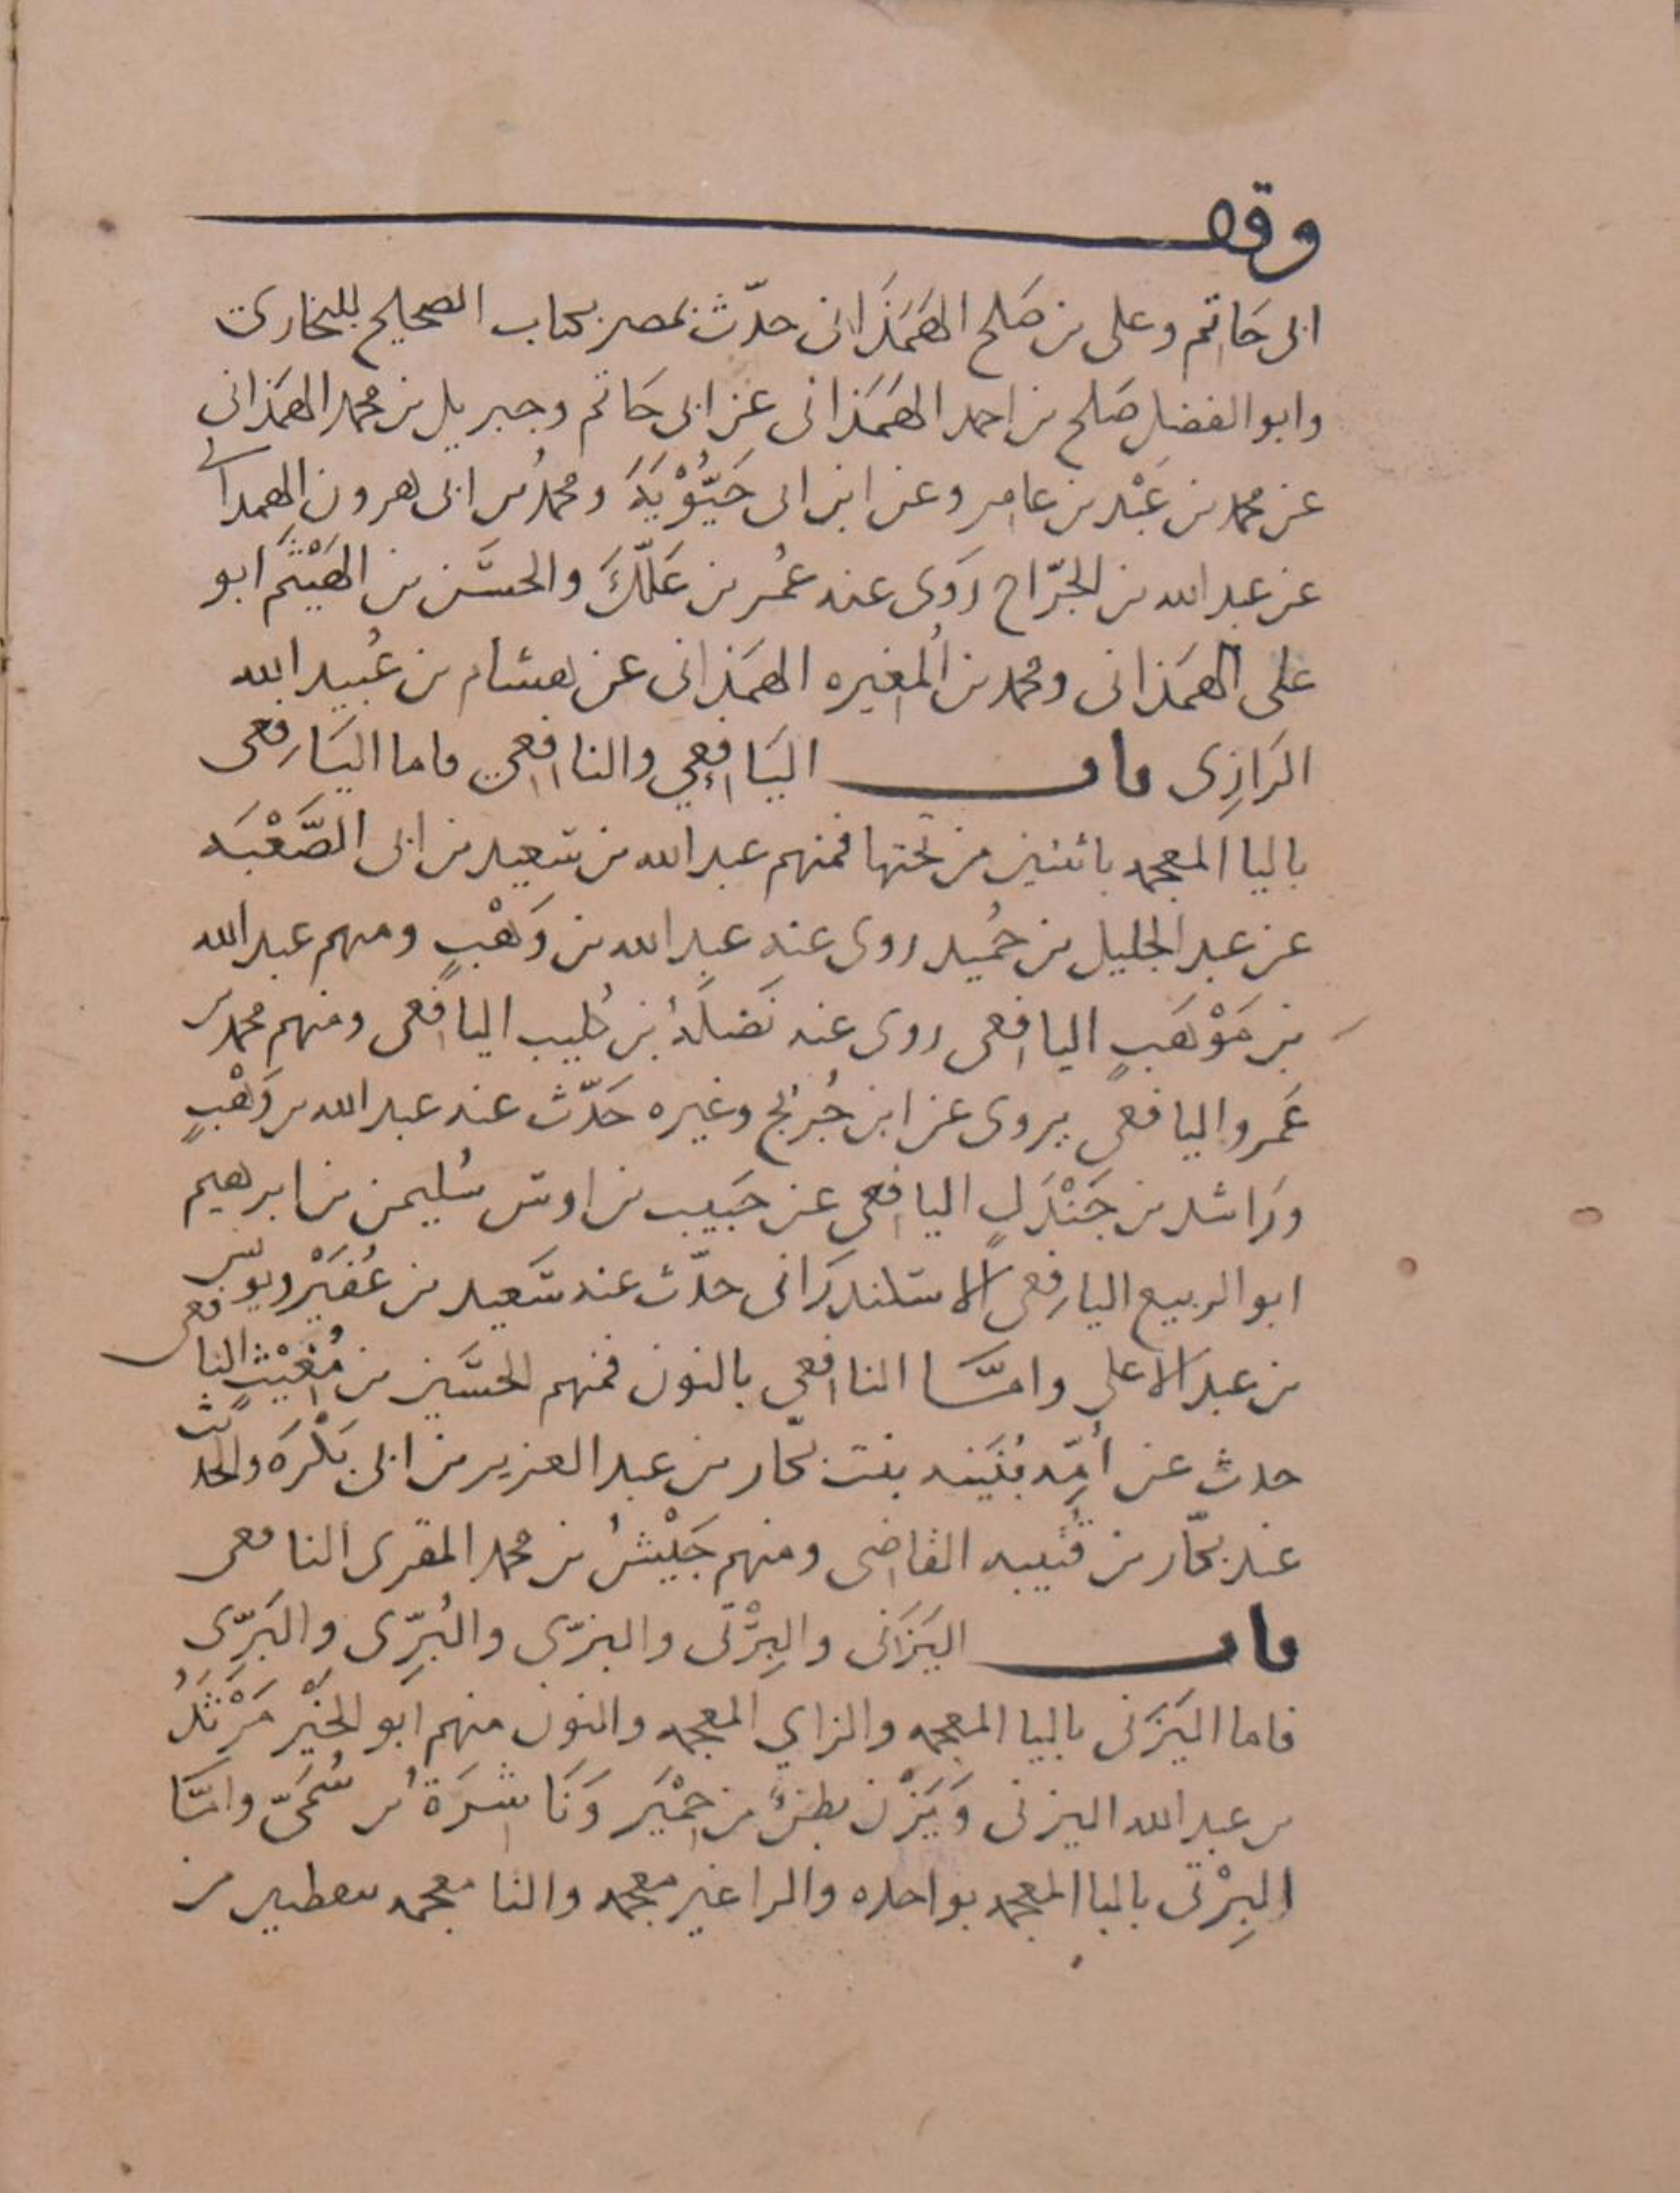 وقف
ابى حَاتِم وعلى بن صَلح الهَمَذَانى حدّث بمصر بكتاب الصحيح للبخارى
وابو الفضل صَلح بن احمد الهَمَذانى عن ابى حَاتم وجبريل بن محمد الهمَذانى
عن محمد بن عَبْد بن عامِر وعن ابن ابى حَيُّوْيَهَ ومحمدُ بن ابى هرون الهمدانى
عن عبد الله بن الجرّاح رَوَى عنه عُمر بن عَلّكَ والحسَن بن الهَيْثَم ابو
على الهمَذانى ومحمد بن المُغِيره الهمَذانى عن هشام بن عُبيد الله
الرَازِى باب اليَافِعي والنافِعي فاما اليَافِعى
باليا المعجمه باثنتين من تحتها فمنهم عبد الله بن سَعيد بن ابى الصَّعْبَه
عن عبد الجليل بن حُميد روى عنه عبد الله بن وَهْبٍ ومنهم عبد الله
بن مَوْهَبٍ اليافِعى روى عنه نَضلَهُ بن كُليب اليافِعى ومنهم محمد بن
عَمرو اليافعى يروى عن ابن جُرَيْج وغيره حَدّث عنه عبد الله بن وَهْبٍ
ورَاشد بن جَنْدَلٍ اليافِعى عن حَبيب بن اوس سُليمن بن ابرهيم
ابو الربيع اليافِعى الاسكندرَانى حدّث عنه سَعيد بن عُفَيْر ويونس
بن عبد الاعلى وامَّا النافِعى بالنون فمنهم الحسَين بن مُغِيْثٍ النافعى
حدث عن أُمِّه بُثَينه بنت بكّار بن عبد العزيز بن ابى بَكْرَه والحدث
عنه بكّار بن قُتيبه القاضِى ومنهم جَيْشُ بن محمد المقرى النافعى
باب اليَزَانى والبِرْتى والبزّى والبُرِّى والبَرّى
فاما اليَزَنى باليا المعجمه والزاي المعجمه والنون منهم ابو الخَيْر مَرْثَدُ
بن عبد الله اليزنى وَيَزْن بطنٌ من حِمْيَر وَنَاشِرَةُ بن سُمَىّ وامَّا
البِرْتى بالبا المعجمه بواحده والرا غير معجمه والتا معجمه بنقطتين من